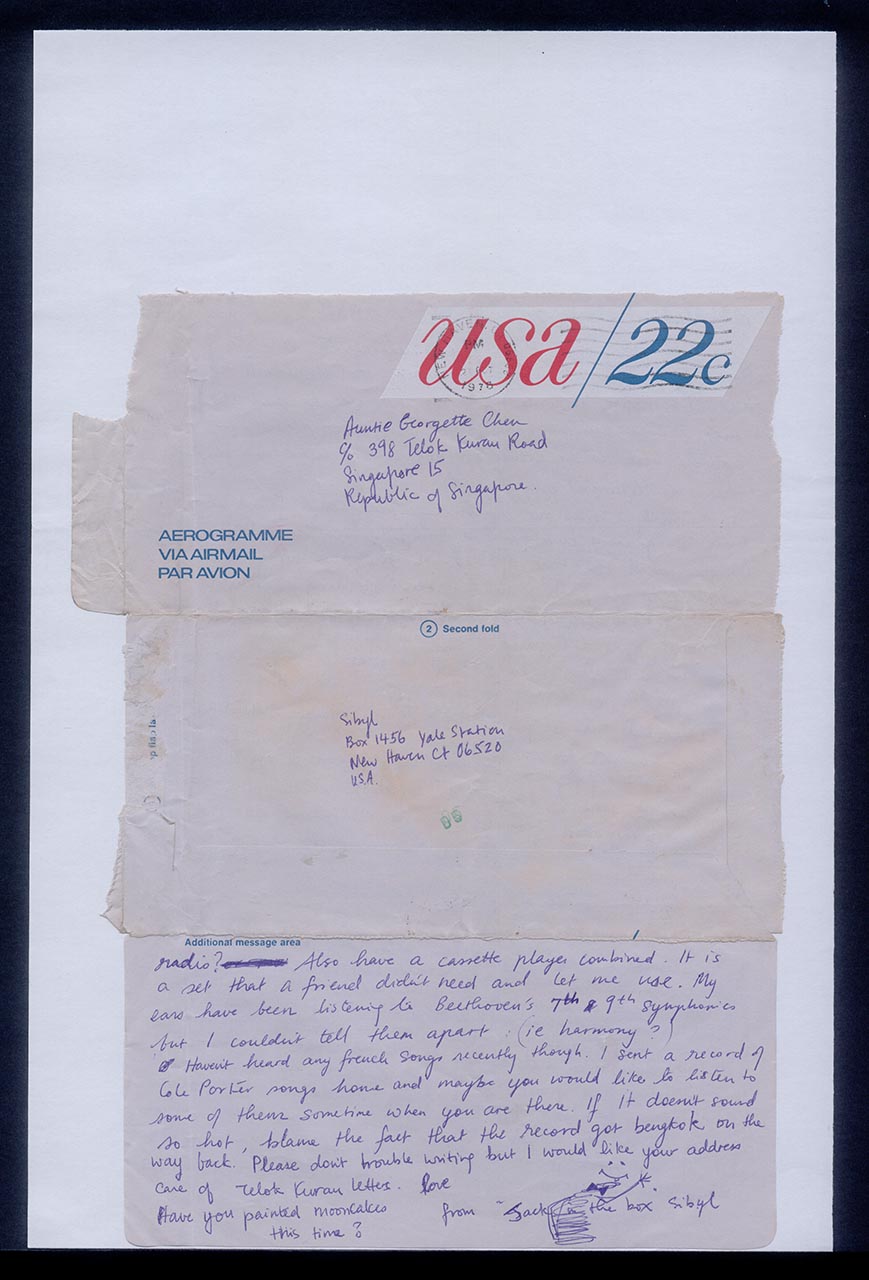 usa/22c
NEW HAVEN
PM
1976
Auntie Georgette Chen
c/o 398 Telok Kurau Road
Singapore 15
Republic of Singapore.
AEROGRAMME
VIA AIRMAIL
PAR AVION
2 Second fold
Sibyl
Box 1456 Yale Station
New Haven Ct 06520
USA.
Additional message area
radio? Also have a cassette player combined. It is
a set that a friend didn't need and let me use. My
ears have been listening to Beethoven's 7th & 9th Symphonies
but I couldn't tell them apart. (ie harmony?)
Haven't heard any french songs recently though. I sent a record of
Cole Porter songs home and maybe you would like to listen to
some of them sometime when you are there. If it doesn't sound
so hot, blame the fact that the record got bengkok on the
way back. Please don't trouble writing but I would like your address
care of Telok Kurau letters. Love
Have you painted mooncakes from Jack in the box Sibyl
this time?